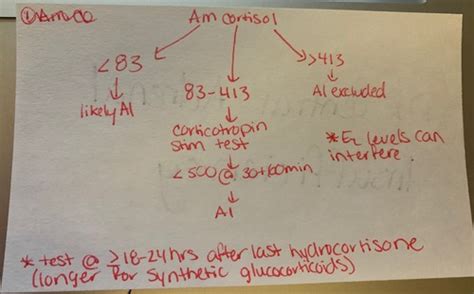 Am cortisol
<83
83-413
>413
likely AI
corticotropin
stim test
AI excluded
<500@ 30+60min
AI
*E₂ levels can
interfere.
* test @ ≥18-24hrs after last hydrocortisone
(longer for synthetic glucocorticoids)